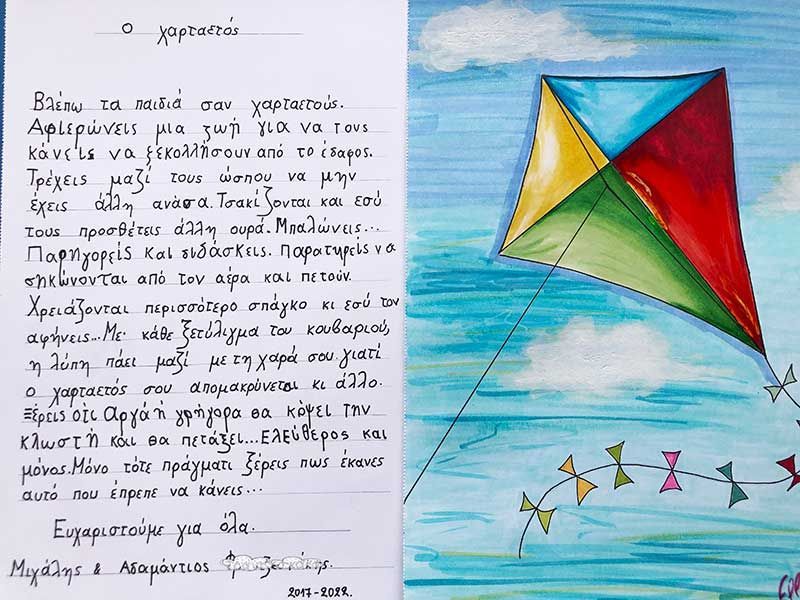 Ο χαρταετός
Βλέπω τα παιδιά σαν χαρταετούς.
Αφιερώνεις μια ζωή για να τους
κάνεις να ξεκολλήσουν από το έδαφος.
Τρέχεις μαζί τους ώσπου να μην
έχεις άλλη ανάσα. Τσακίζονται και εσύ
τους προσθέτεις άλλη ουρά. Μπαλώνεις...
Παρηγορείς και διδάσκεις. Παρατηρείς να
σηκώνονται από τον αέρα και πετούν.
Χρειάζονται περισσότερο σπάγκο κι εσύ τον
αφήνεις... Με κάθε ξετύλιγμα του κουβαριού,
η λύπη πάει μαζί με τη χαρά σου γιατί
ο χαρταετός σου απομακρύνεται κι άλλο.
Ξέρεις ότι Αργά ή γρήγορα θα κόψει την
κλωστή και θα πετάξει... Ελεύθερος και
μόνος. Μόνο τότε πράγματι ξέρεις πως έκανες
αυτό που έπρεπε να κάνεις...
Ευχαριστούμε για όλα.
Μιχάλης & Αδαμάντιος
2017-2022.